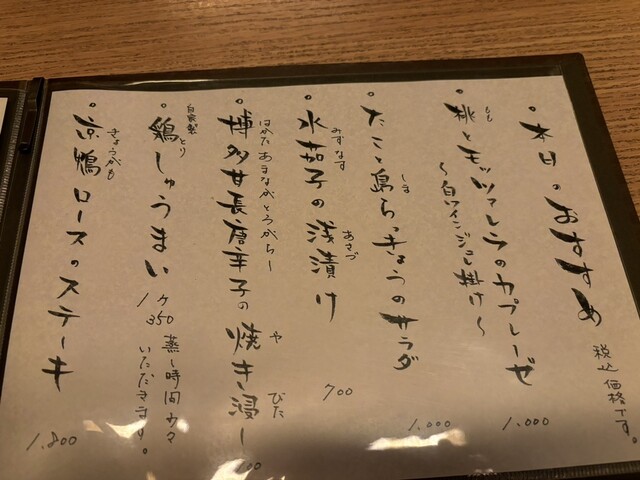 本日のおすすめ
税込価格です。
・桃ともッツァレラのカプレーゼ
もも
〜白ワインジュレ掛け〜
1,000
・たこと島らっきょうのサラダ
しま
1,000
・水茄子の浅漬け
みずなす
あさづ
700
・博多甘長唐辛子の焼き浸し
はかたあまながとうがらし
や
びた
・自家製
鶏しゅうまい
とり
1ヶ
350
蒸し時間少々
いただきます。
・京鴨ロースのステーキ
きょうがも
1,800